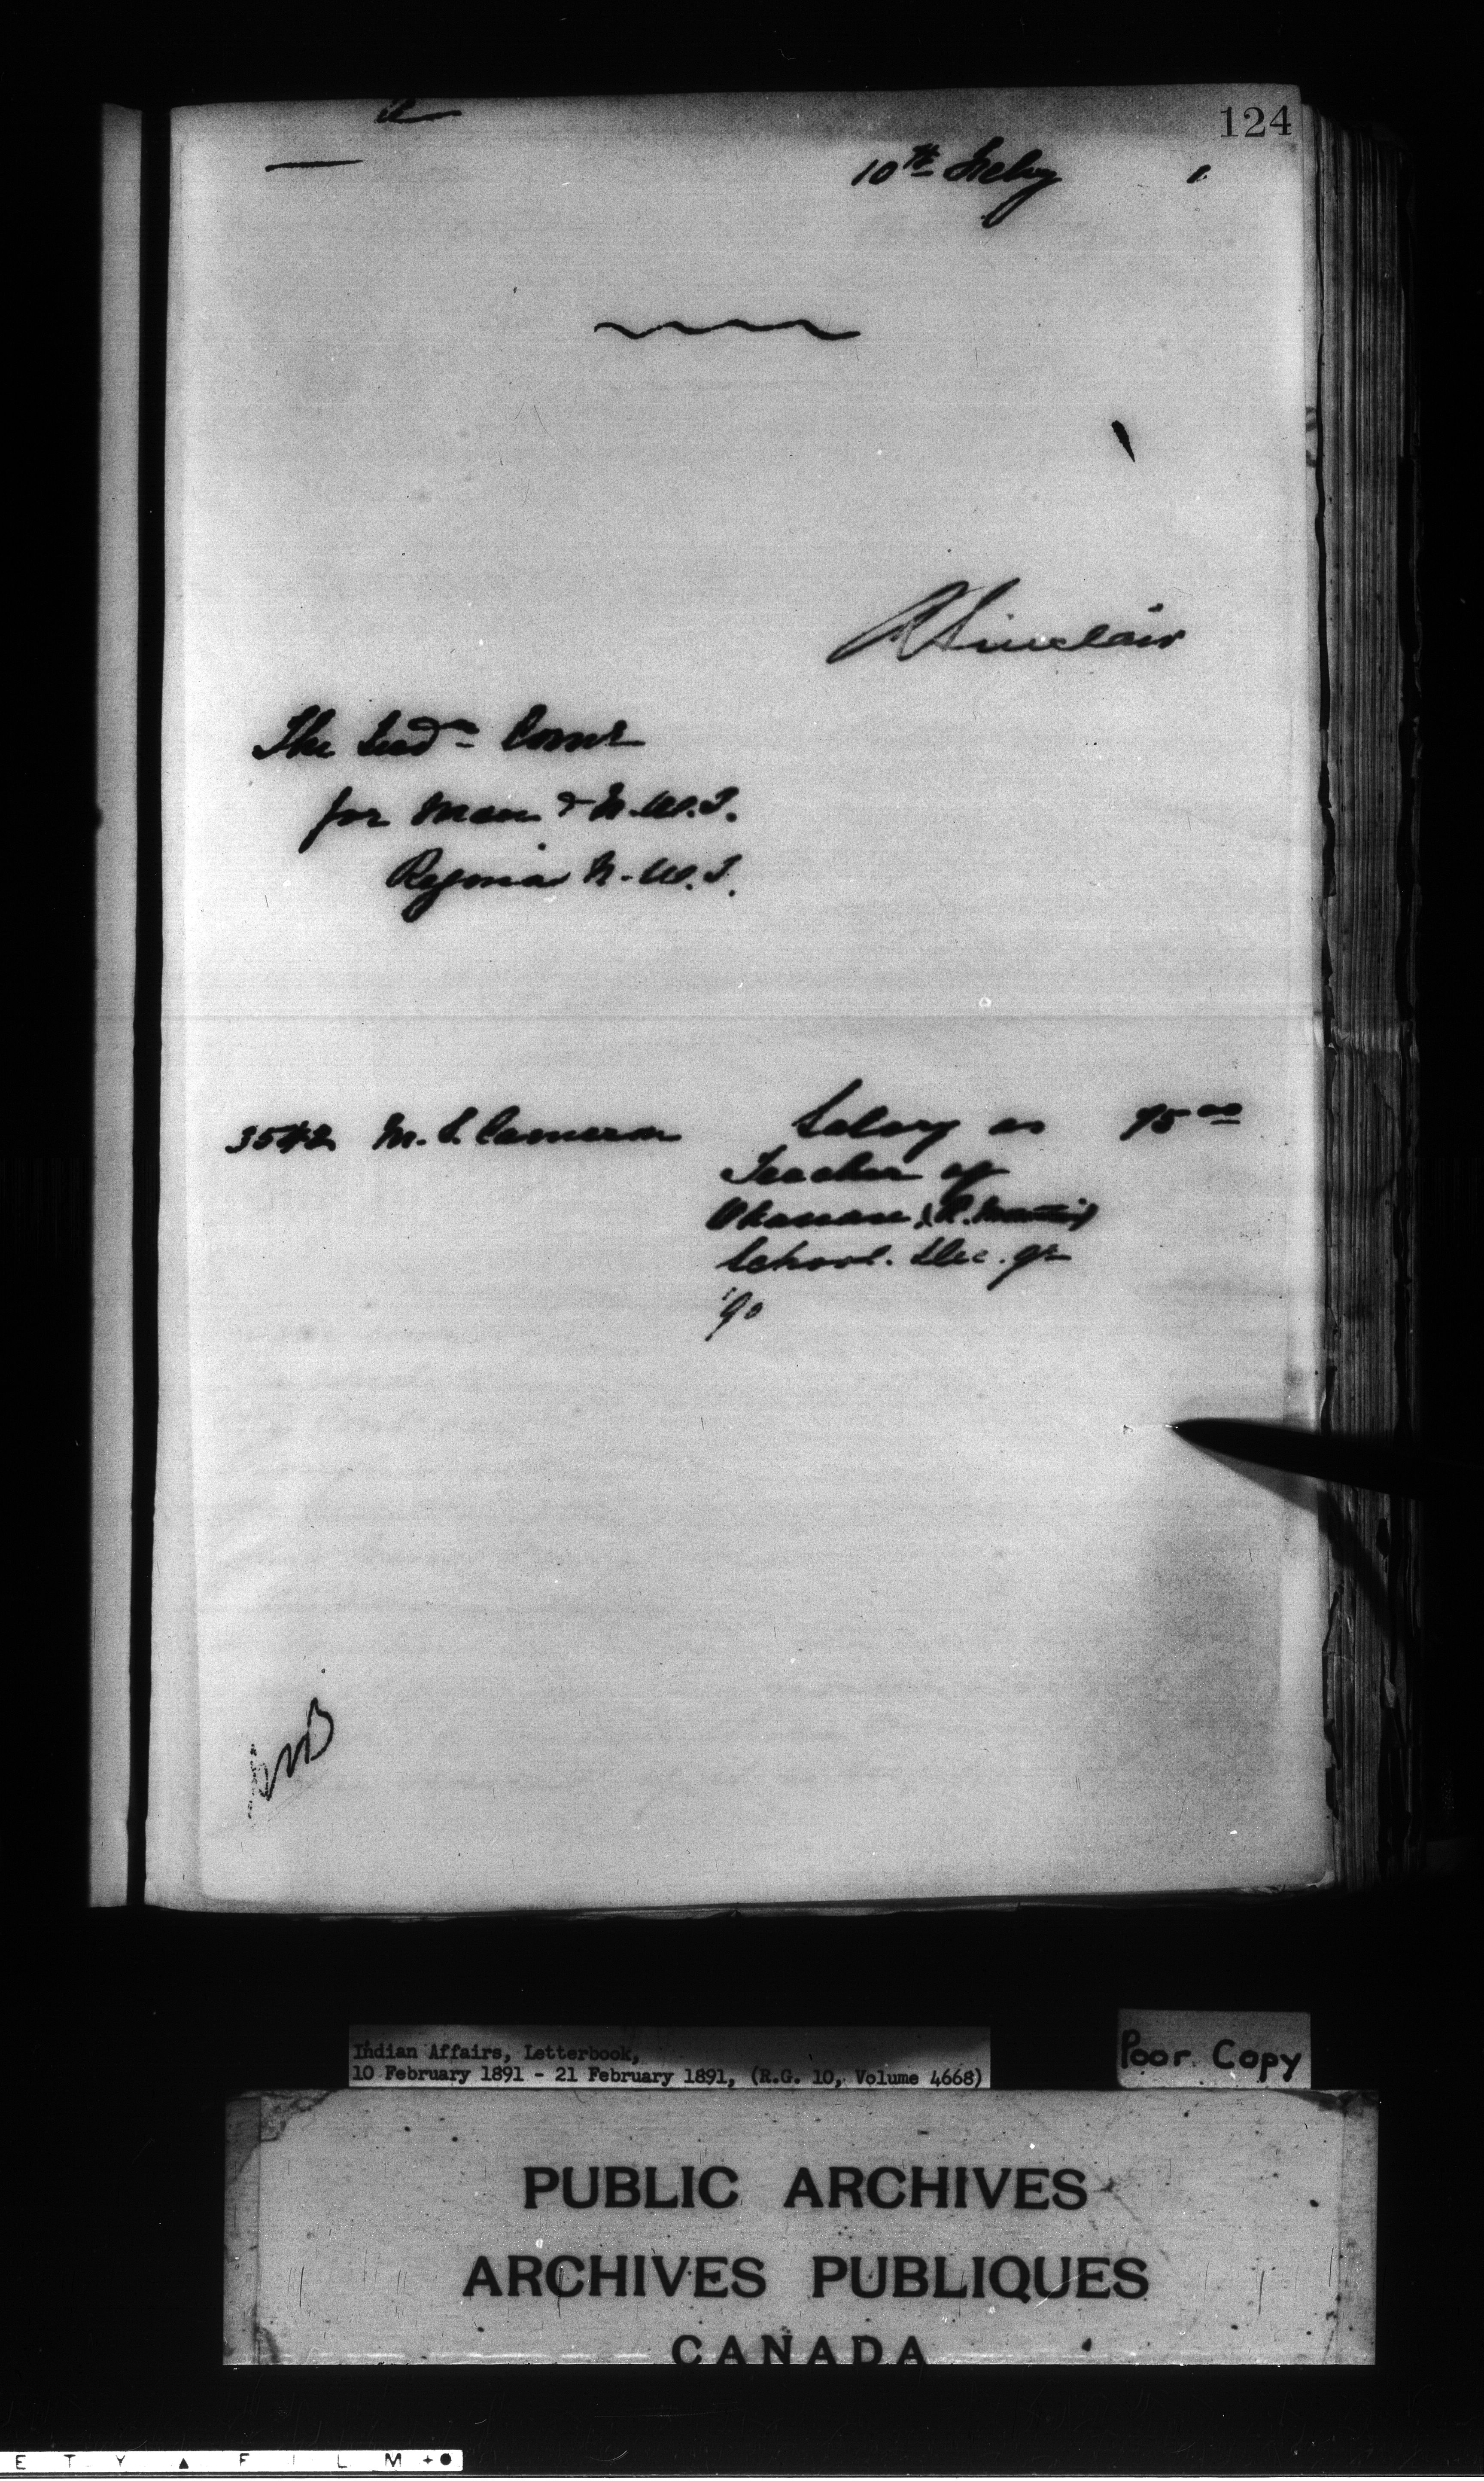 124
10th Feby 1
R Sinclair
The Ind n Comr
for Man & N.W.T.
Regina N.W.T.
3542 M. S. Cameron Salary as 75 00
Teacher of
Okanase
School. Dec. qr
'90
Indian Affairs, Letterbook,
10 February 1891 - 21 February 1891, (R.G. 10, Volume 4668)
Poor Copy
PUBLIC ARCHIVES
ARCHIVES PUBLIQUES
CANADA
E T Y ▲ F I L M